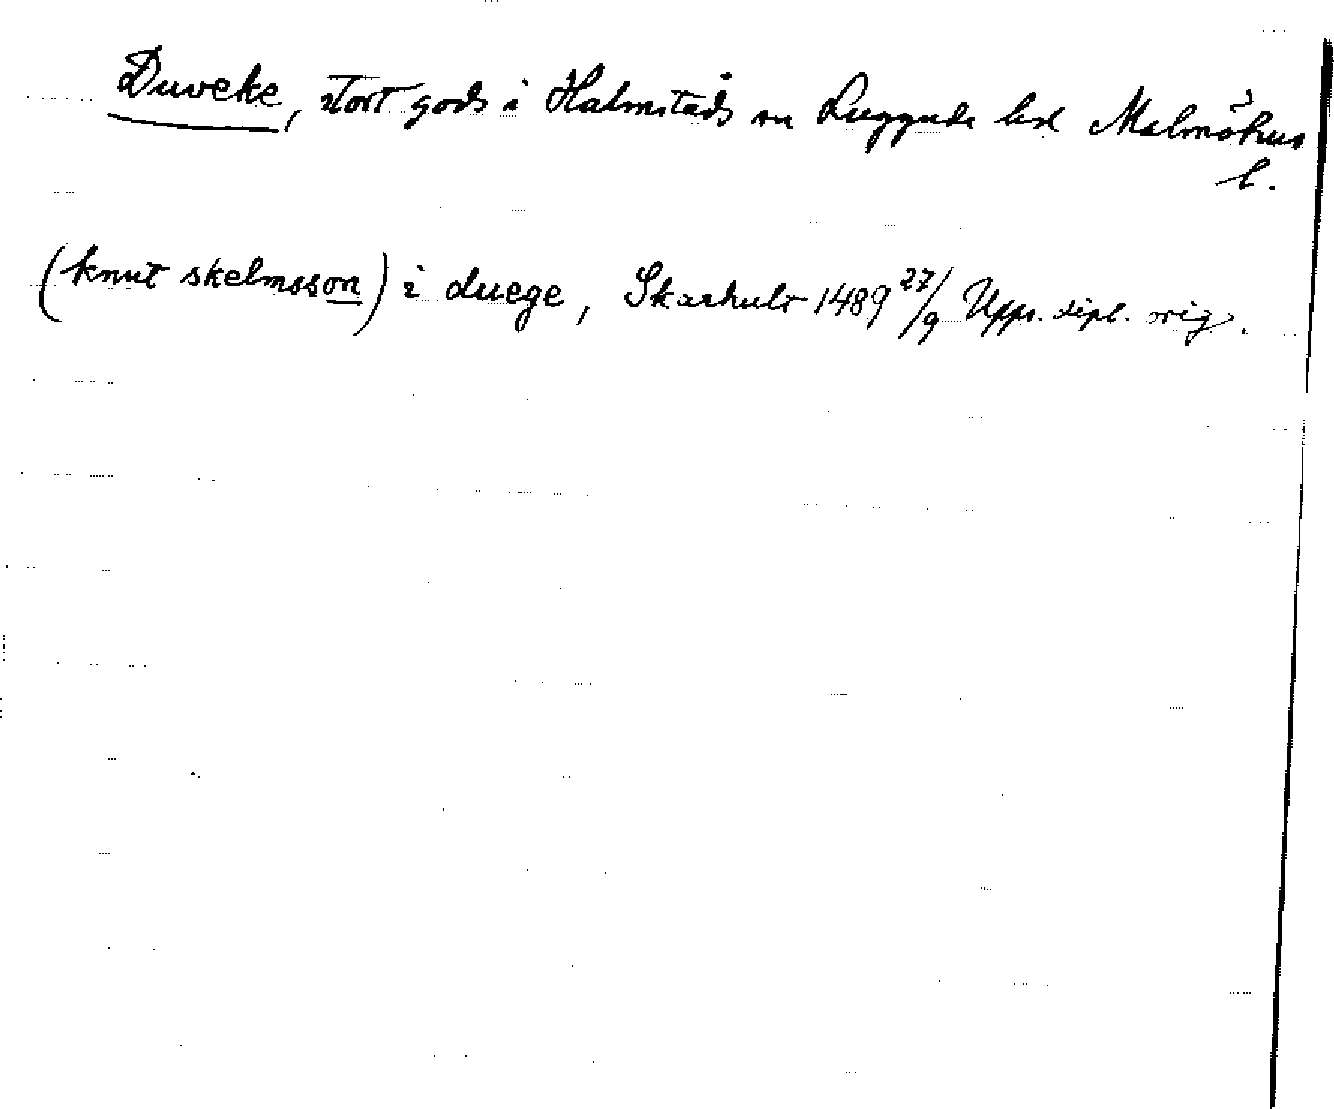 Duveke, stort gods i Halmstads sn Luggude hd Malmöhus
l.
(knut skelmsson) i duege, Skarhult 1489 27/9 Upps. dipl. orig.